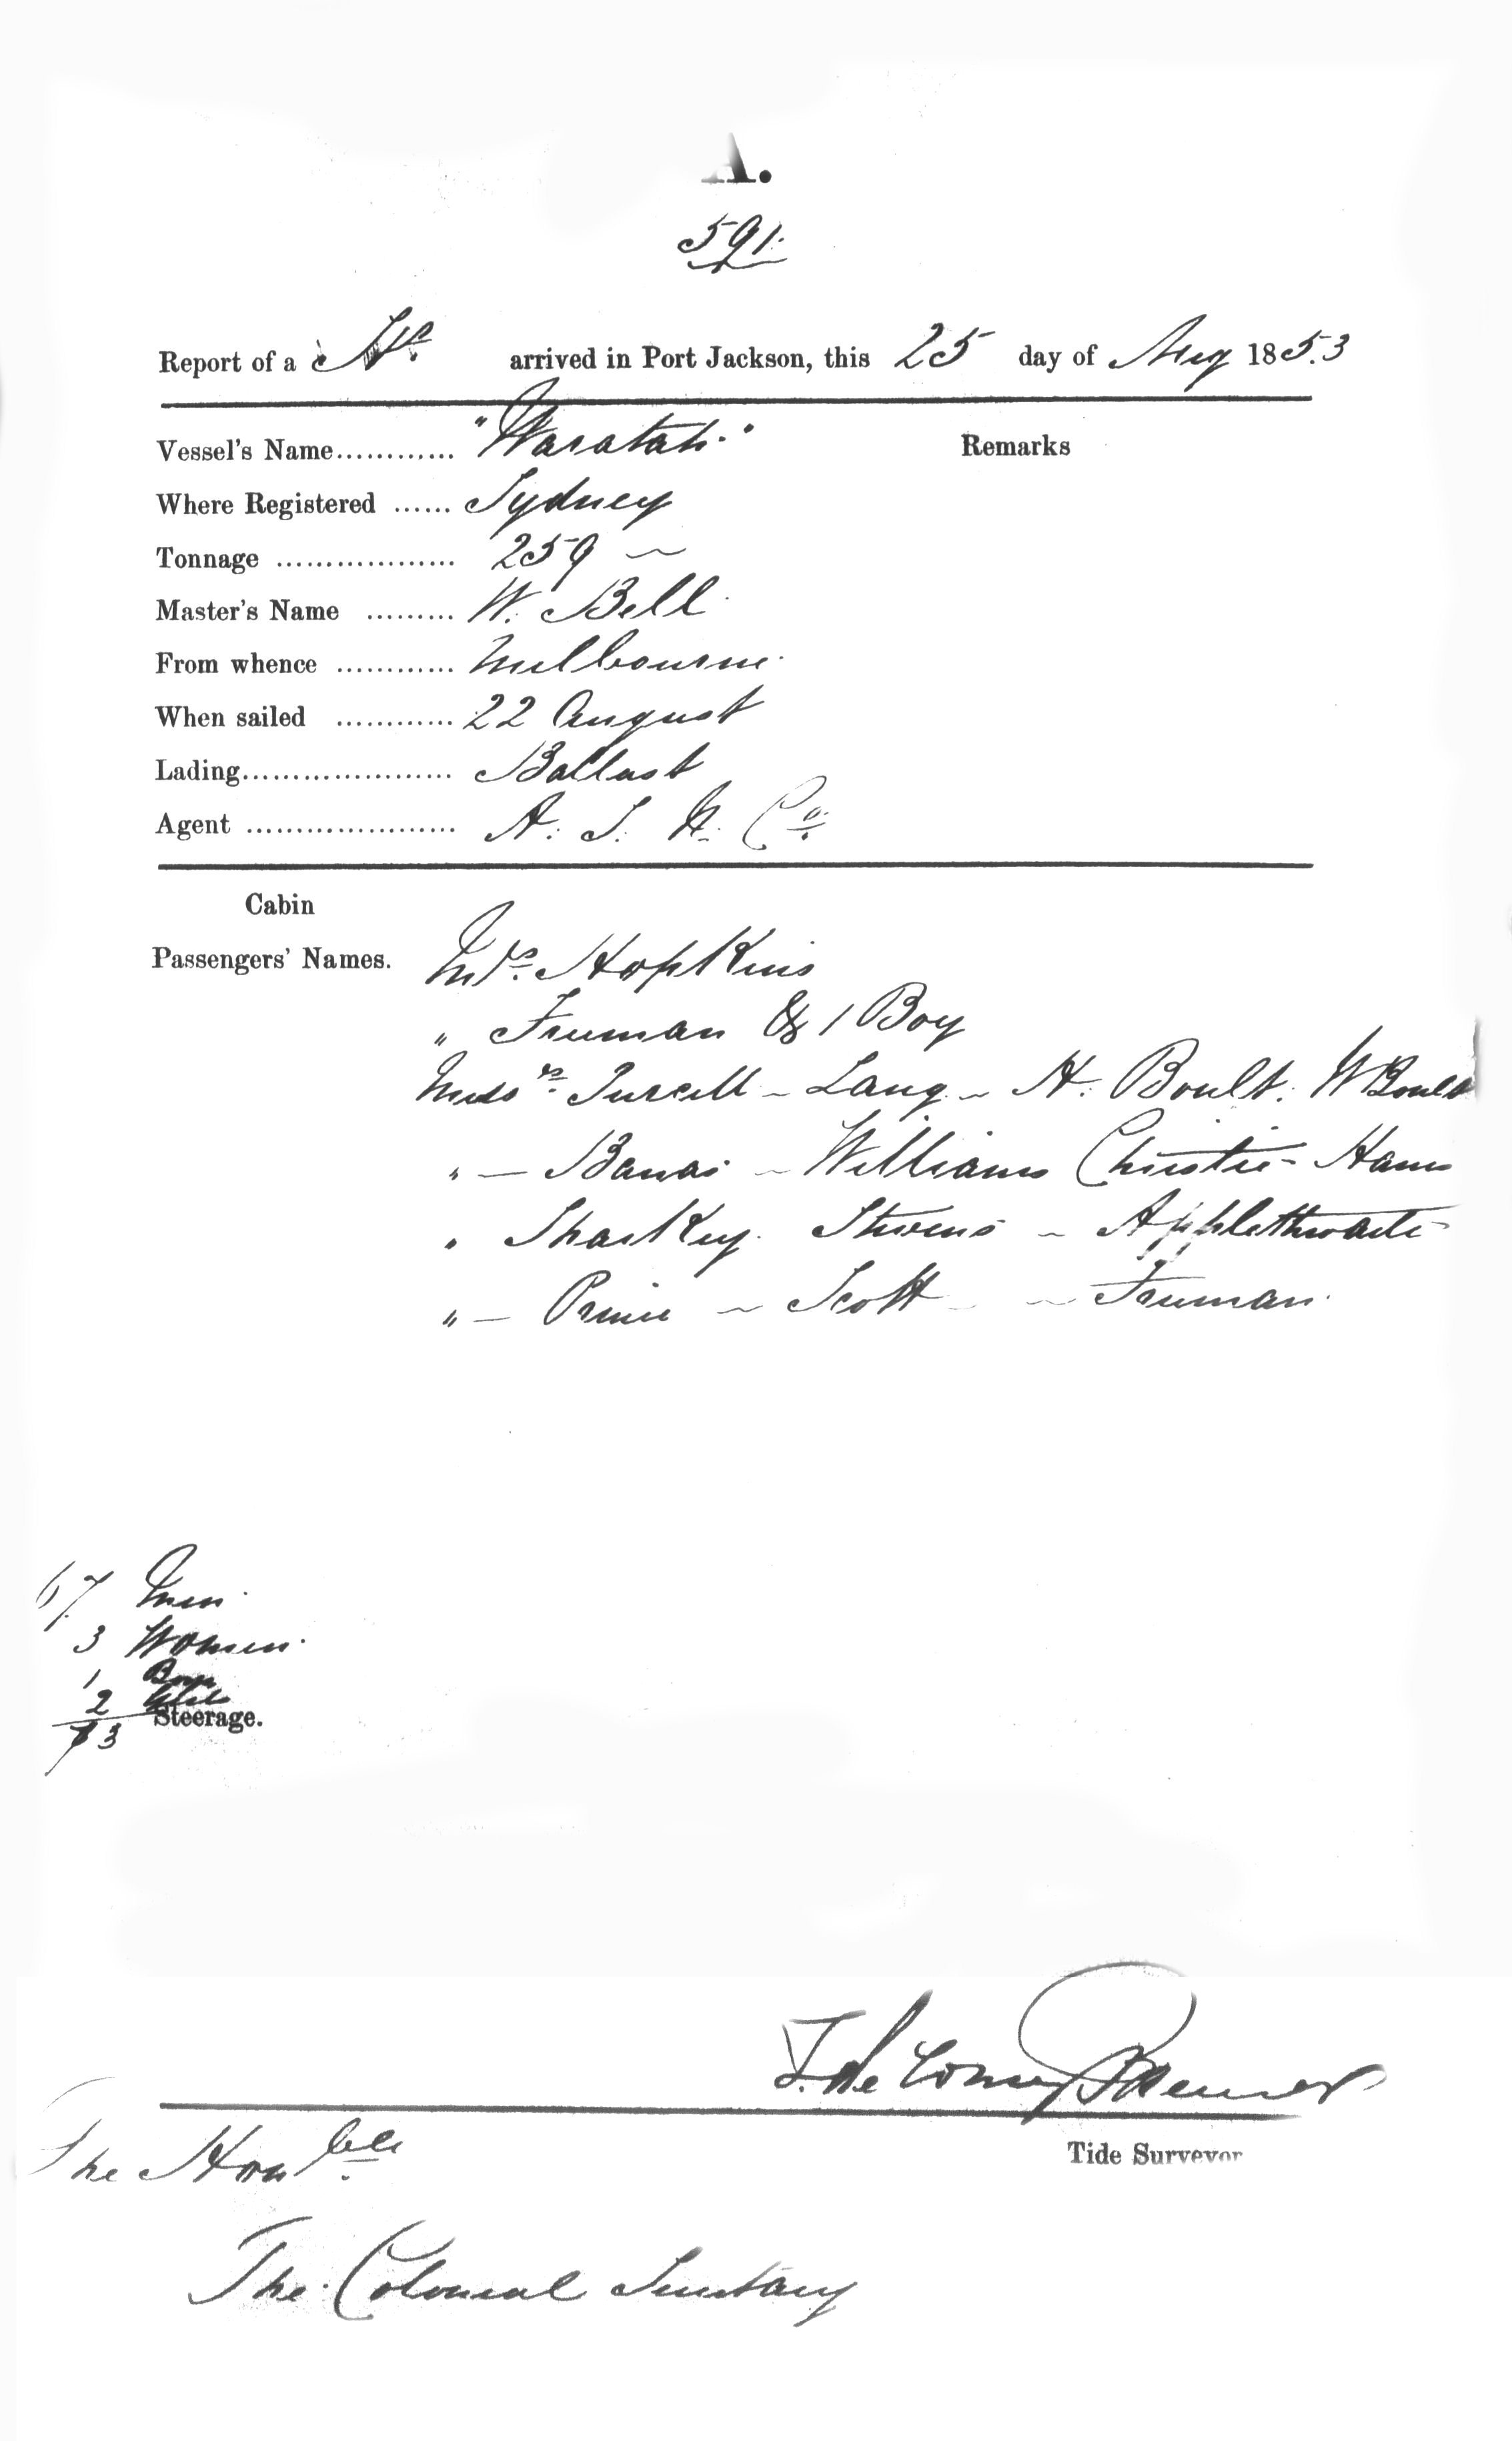 A.
591.
Report of a Str. arrived in Port Jackson, this 25 day of Aug 1853
Vessel's Name............ "Waratah." Remarks
Where Registered ...... Sydney
Tonnage .................. 259 ~
Master's Name ......... W. Bell
From whence ............ Melbourne.
When sailed ............ 22 August
Lading..................... Ballast
Agent ..................... A. S. N. Co.
Cabin
Passengers' Names. Mrs. Hopkins
" Freeman & 1 Boy
Messrs. - Lang - H. Boult. W Boult
" - - Williams Christie - Hann
" Sharkey. Stevens - Applethwaite -
" - Prince - Scott - Freeman.
67 Men
3 Women.
1 Boy
2
73 Steerage.
Tide Surveyor
The Honble.
The Colonial Secretary